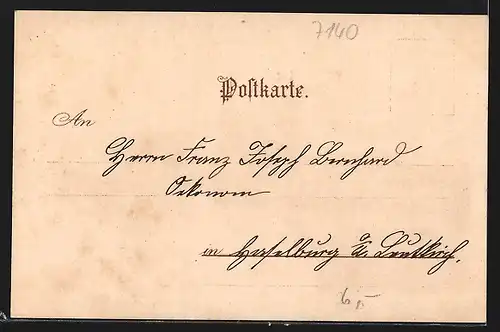 7140
Postkarte.
An
Herrn Franz Joseph Bernhard
Oekonom
in Haselburg a/ Leutkirch.